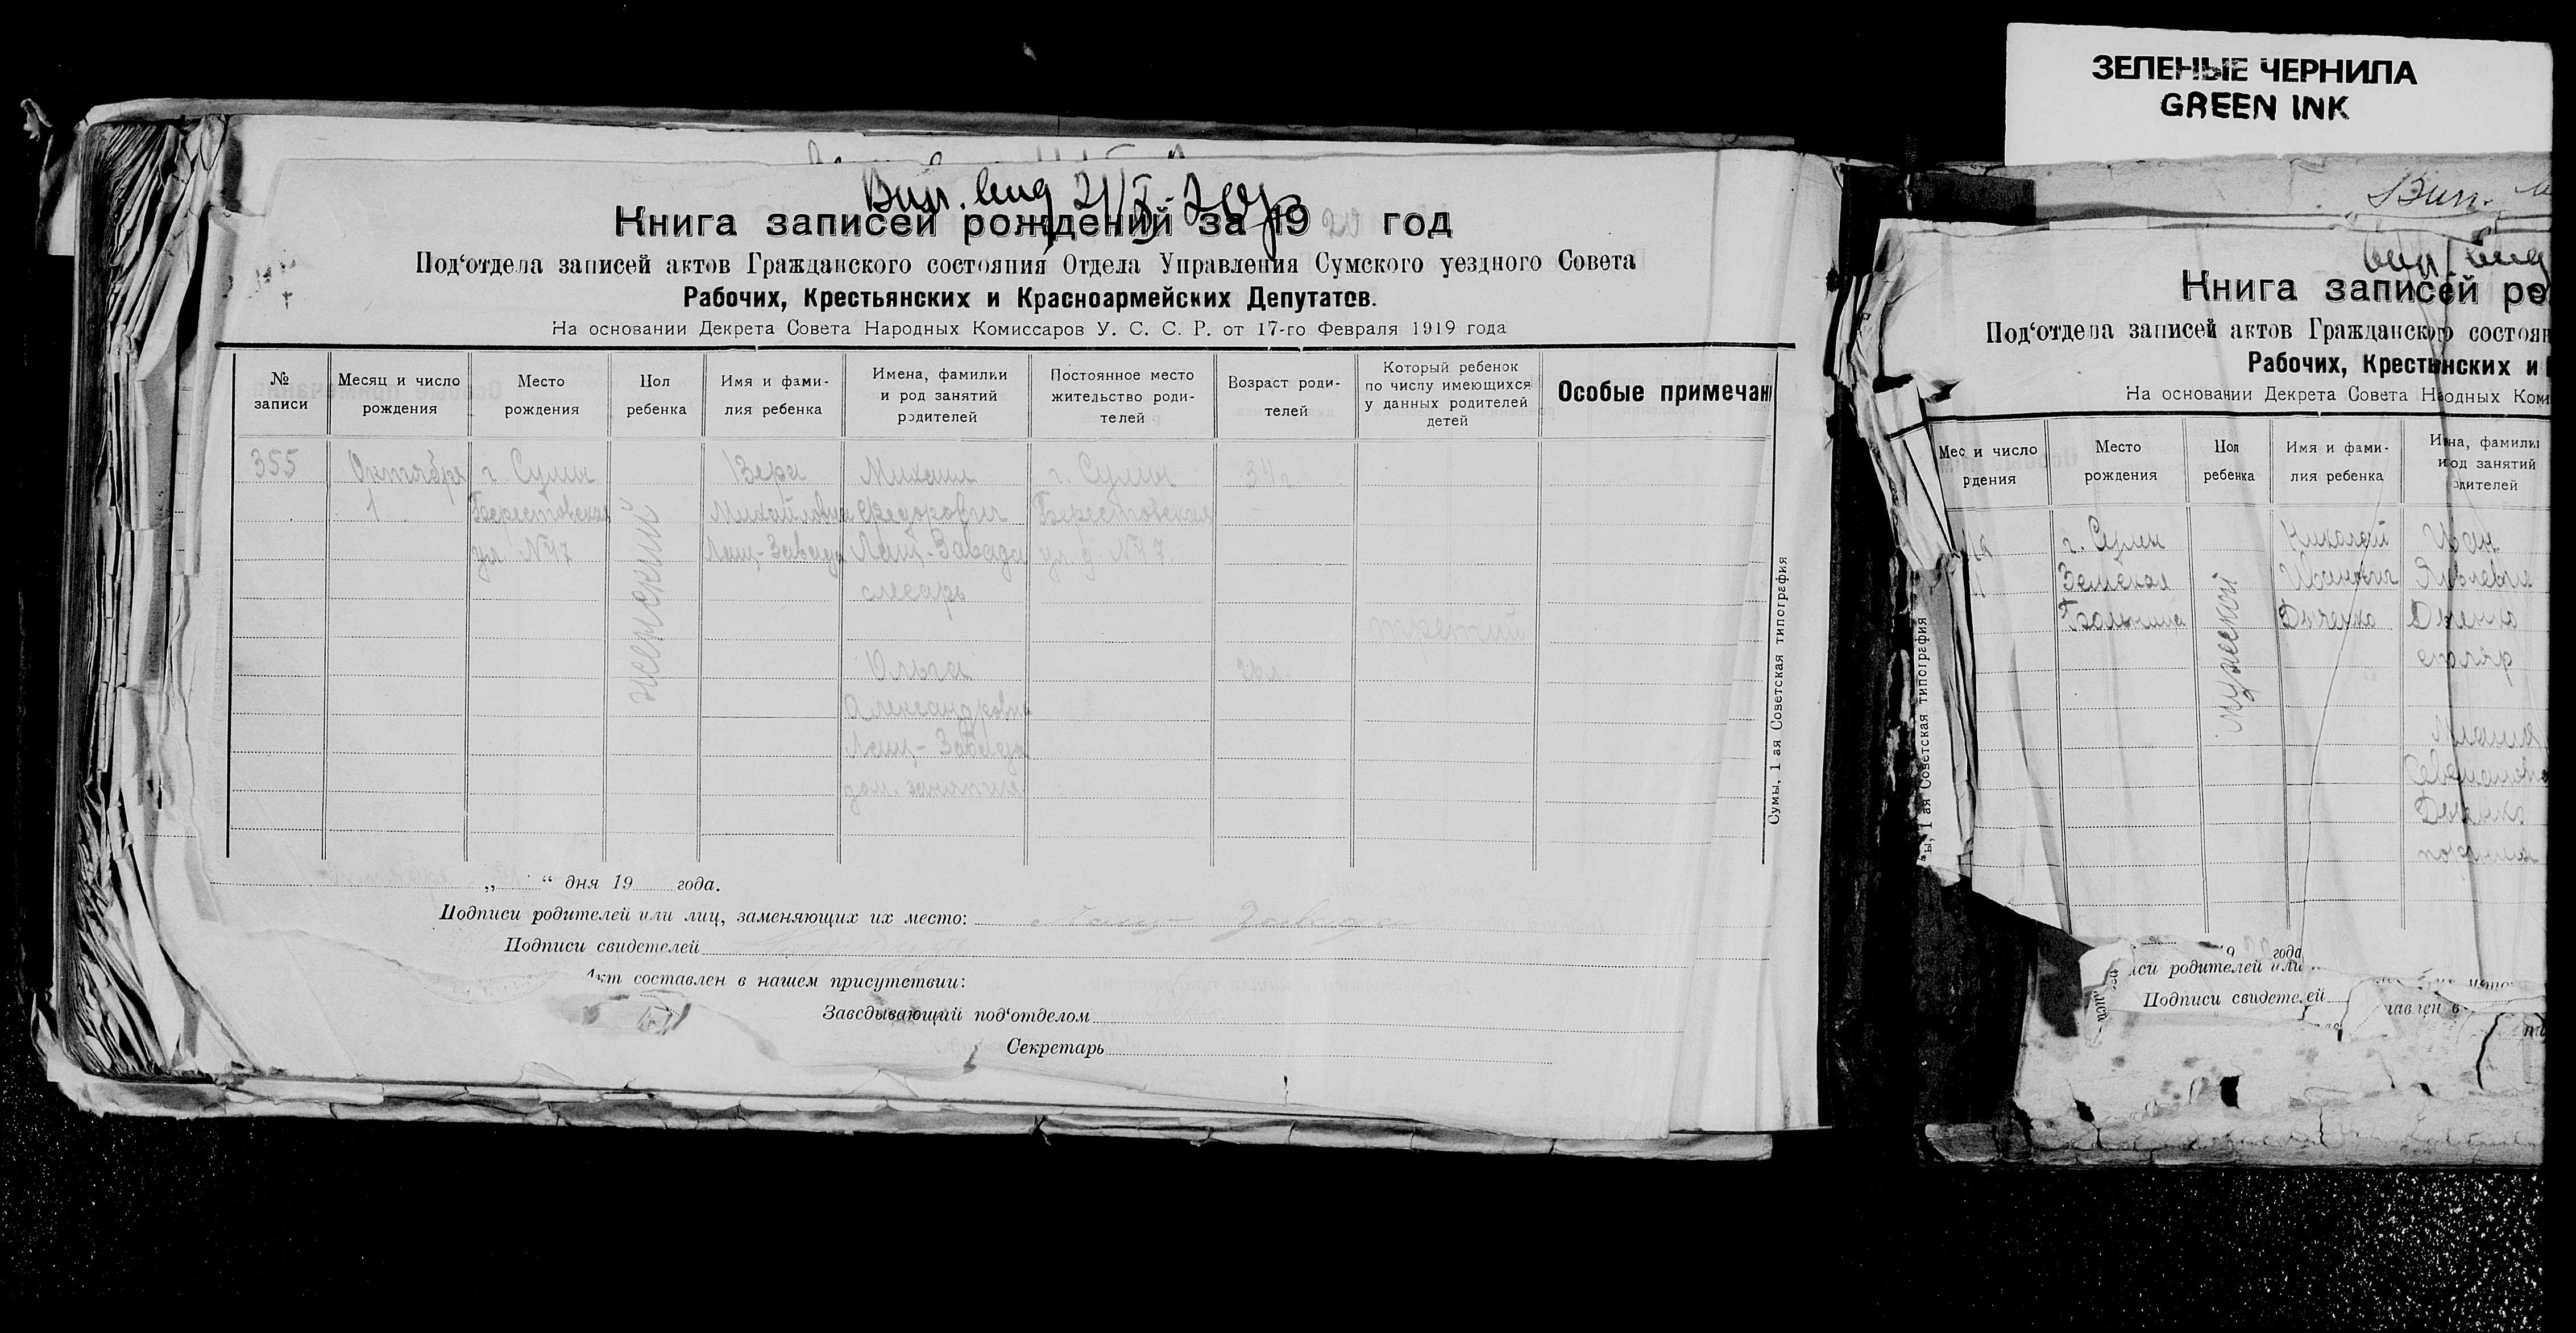 ЗЕЛЕНЫЕ ЧЕРНИЛА
GREEN INK
Книга записей рождений за 1920 год
Под‘отдела записей актов Гражданского состояния Отдела Управления Сумского уездного Совета
Рабочих, Крестьянских и Красноармейских Депутатов.
На основании Декрета Совета Народных Комиссаров У. С. С. Р. от 17-го Февраля 1919 года
№ записи
Месяц и число рождения
Место рождения
Пол ребенка
Имя и фами-
лия ребенка
Имена, фамилии
и род занятий
родителей
Постоянное место
жительство роди-
телей
Возраст роди-
телей
Который ребенок
по числу имеющихся
у данных родителей
детей
Особые примечан
355
Октября
1
г. Сумы
Берестовская
ул. №47
женский
Вера
Михайловна
Лащ-Завада
Михаил
Федорович
Лащ-Завада
слесарь
Ольга
Александровна
Лащ-Завада
дом. занятие
г. Сумы
Берестовская
ул. д. №47.
34 г.
третий
Сумы, 1 ая Советская типография
„ “ дня 19 года.
Подписи родителей или лиц, заменяющих их место: Лащ-Завада
Подписи свидетелей
Акт составлен в нашем присутствии:
Заведывающий под‘отделом
Секретарь
Вип.
Книга записей ро
Под‘отдела записей актов Гражданского состоян
Рабочих, Крестьянских и
На основании Декрета Совета Народных Коми
Мес и число
рдения
Место
рождения
Пол
ребенка
Имя и фами-
лия ребенка
Имена, фамилии
и род занятий
родителей
г. Сумы
Земская
Больница
мужской
Николай
Иванович
Дяченко
Иван
Яковлевич
Дяченко
столяр
1 ая Советская типография
года
иси родителей или
Подписи свидетелей
тавлен в